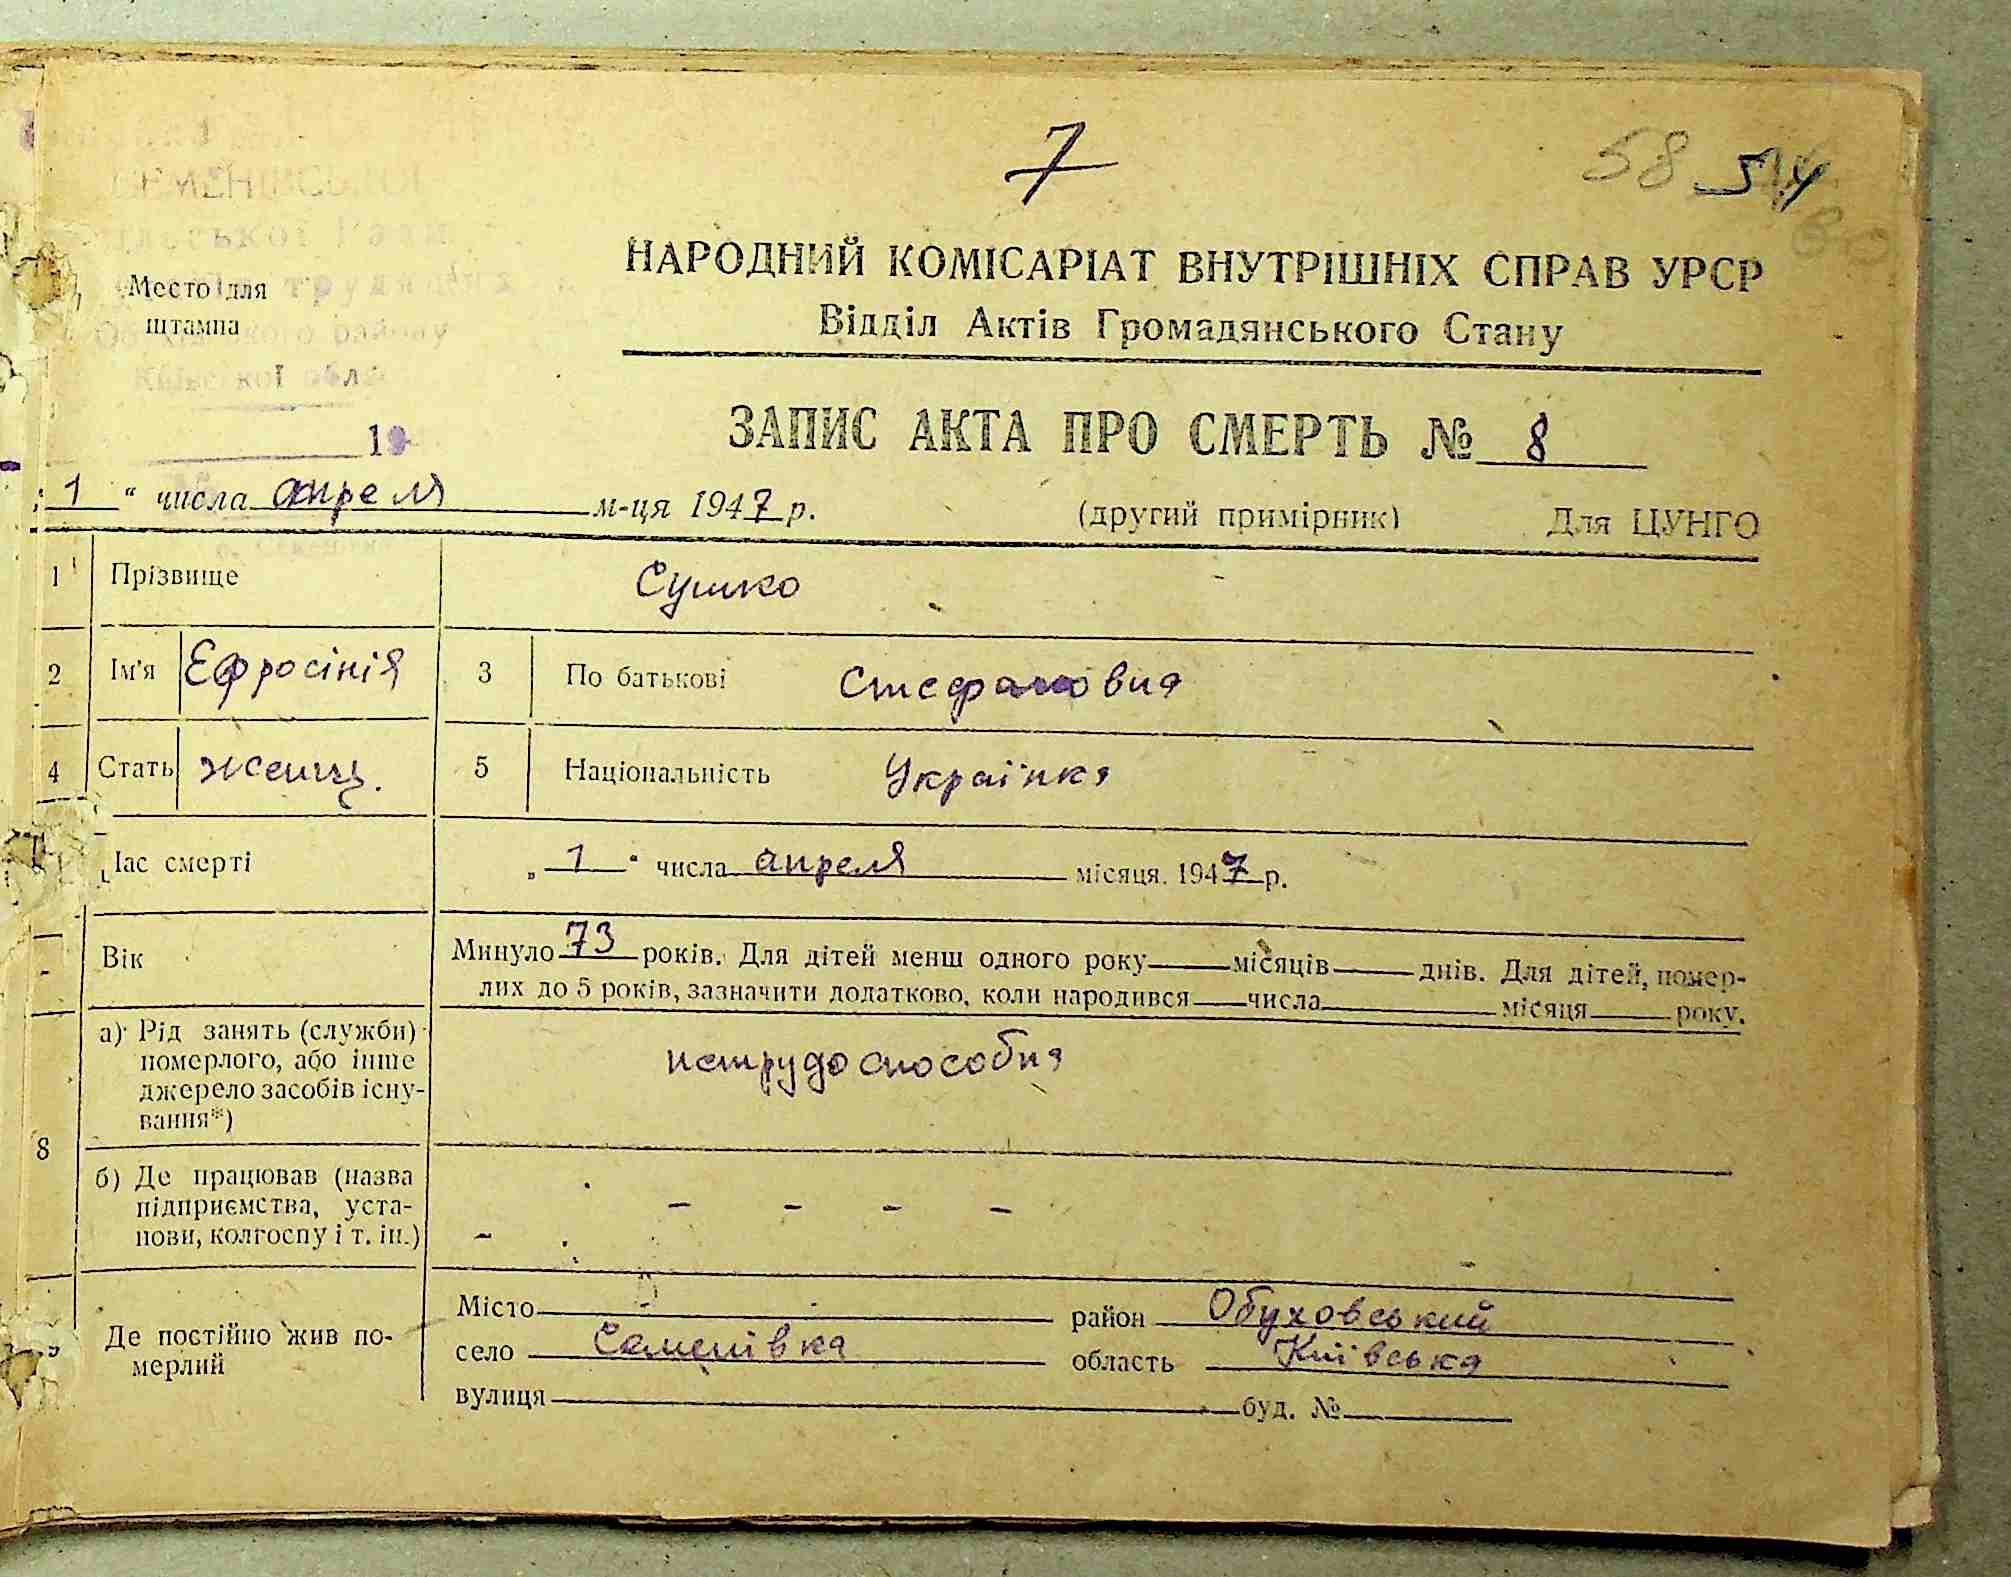 7
58 54
СЕМЕНІВСЬКОЇ
сільської Ради
трудящих
Место для
штампа
району
Київської обл.
НАРОДНИЙ КОМІСАРІАТ ВНУТРІШНІХ СПРАВ УРСР
Відділ Актів Громадянського Стану
ЗАПИС АКТА ПРО СМЕРТЬ № 8
19
„1“ числа апреля м-ця 1947 р. (другий примірник) Для ЦУНГО
1 Прізвище Сушко
2 Ім'я Ефросінія 3 По батькові Стефановна
4 Стать женщ. 5 Національність Українка
Час смерті „1“ числа апреля місяця 1947 р.
Вік Минуло 73 років. Для дітей менш одного року місяців днів. Для дітей, помер-
лих до 5 років, зазначити додатково, коли народився числа місяця року.
8 а) Рід занять (служби)
померлого, або інше
джерело засобів існу-
вання*)
нетрудоспособна
б) Де працював (назва
підприємства, уста-
нови, колгоспу і т. ін.)
- - - - -
9 Де постійно жив по-
мерлий
Місто - район Обуховський
село Семенівка область Київська
вулиця буд. №